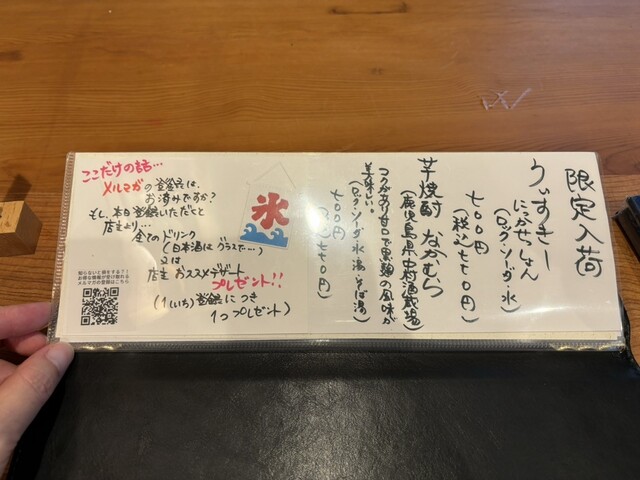 限定入荷
うぃすきー
（ロック・ソーダ・水）
七〇〇円
（税込七七〇円）
芋焼酎 なかむら
（鹿児島県中村酒造場）
コクがあり甘口で黒麹の風味が
美味しい。
（ロック・ソーダ・水・湯・そば湯）
七〇〇円
（税込七七〇円）
氷
ここだけの話…
メルマガの登録は、
お済みですか？
もし、本日登録いただくと
店主より…
全てのドリンク
（日本酒はグラスで…）
又は
店主おススメデザート
プレゼント!!
（1（いち）登録につき
1つプレゼント）
知らないと損をする？！
お得な情報が受け取れる
メルマガの登録はこちら